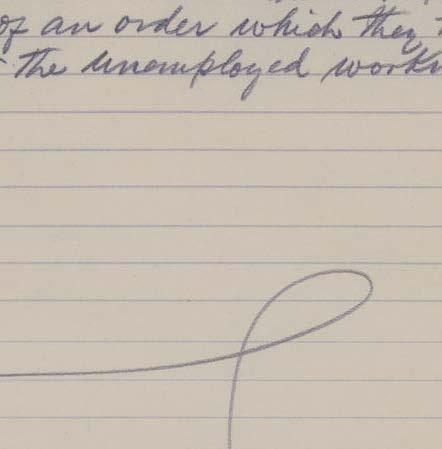 of an order which they
the unemployed